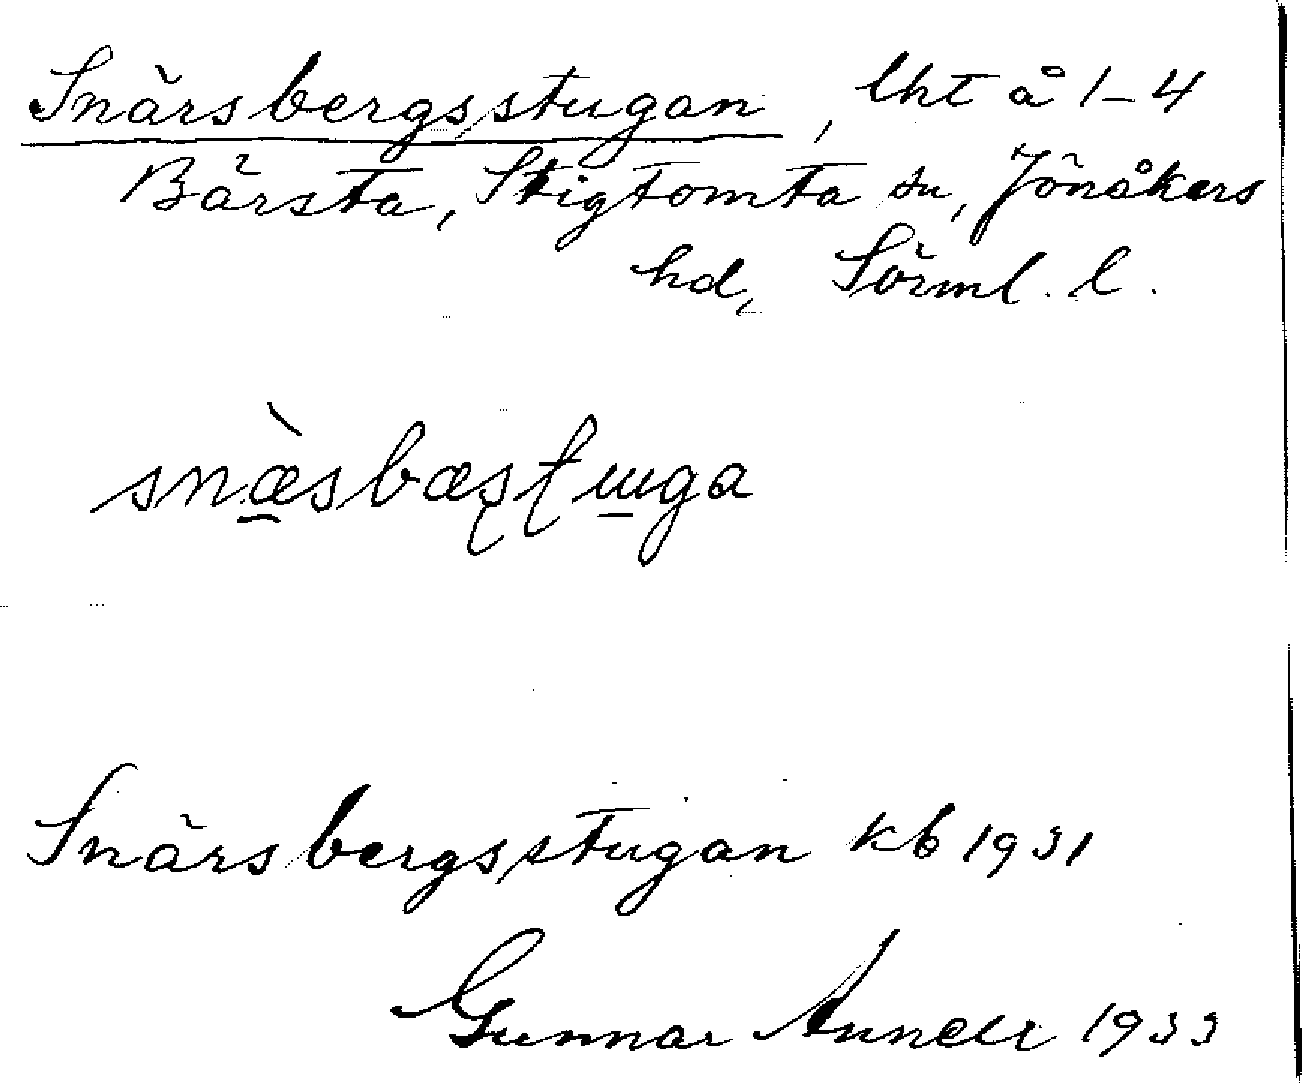 Snärsbergsstugan, lht å 1-4
Bärsta, Stigtomta sn, Jönåkers
hd, Sörml. l.
snæ̀sbæsʈɯga
Snärsbergsstugan kb 1931
Gunnar Annell 1933